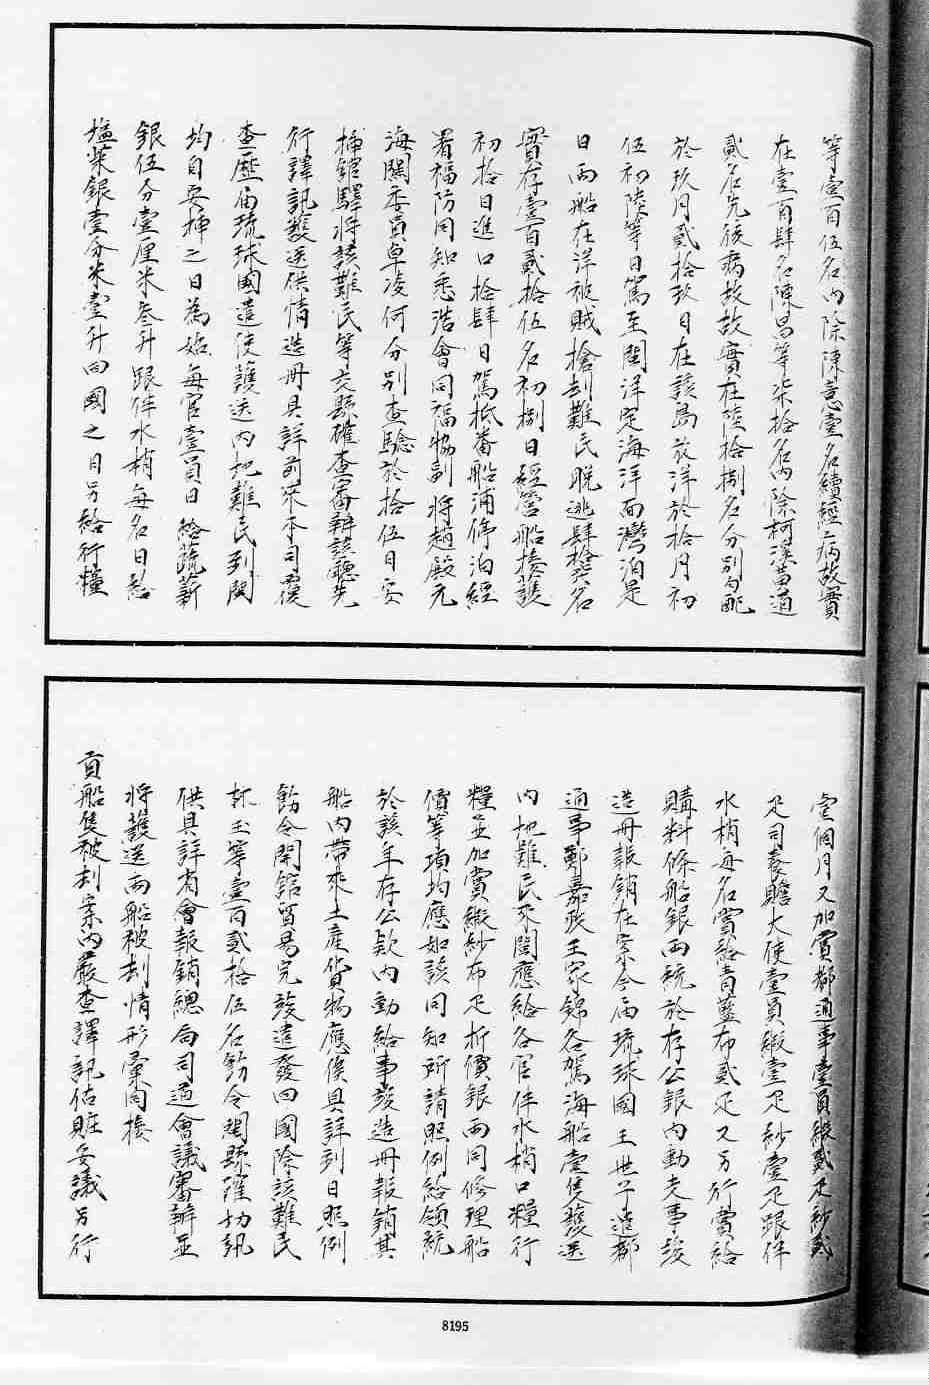 等壹百伍名內除陳意壹名續經病故實
在壹百肆名陳昌等柒拾名內除柯溪苗通
貳名先後病故故實在陸拾捌名分別勻配
於玖月貳拾玖日在該島放洋於拾月初
伍初陸等日駕至閩洋定海洋面灣泊是
日兩船在洋被賊搶刼難民脫逃肆拾名
實存壹百貳拾伍名初捌日經營船接護
初拾日進口拾肆日駕抵番船浦停泊經
署福防同知悉浩會同福協副將趙殿元
海關委員卓凌何分別查驗於拾伍日安
插舘驛將該難民等交縣確查審辦該聽先
行譯訊護送供情造冊具詳前來本司覆
查歷届琉球國遣使護送內地難民到閩
均自安插之日為始每官壹員日給蔬薪
銀伍分壹厘米叁升跟伴水梢每名日
塩菜銀壹分米壹升回國之日另給行糧
壹個月又加賞都通事壹員緞貳疋紗貳
疋司養贍大使壹員緞壹疋紗壹疋跟伴
水梢每名賞給青藍布貳疋又另行賞給
購料修船銀兩統於存公銀內動支事竣
造冊報銷在案今届琉球國王世子遣都
通事鄭嘉政王家錦各駕海船壹隻護送
內地難民來閩應給各官伴水梢口糧行
糧並加賞緞紗布疋折價銀兩同修理船
價等項均應如該同知所請照例給領統
於該年存公款內動給事竣造冊報銷其
船內帶來土產貨物應俟具詳到日照例
飭令開舘貿易完竣遣發回國除該難民
林玉等壹百貳拾伍名飭令閩縣確切訊
供具詳省會報銷總局司道會議審辦並
將護送兩船被刼情形彙同接
貢船隻被刼案內嚴查譯訊估賍妥議另行
8195